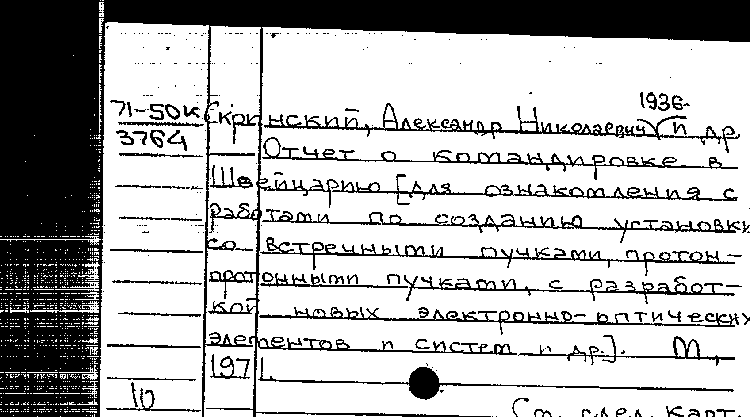 1936-
71-50к Скринский, Александр Николаевич и др.
3764
Отчет о командировке в
Швейцарию [для ознакомления с
работами по созданию установки
со встречными пучками, протон-
протонными пучками, с разработ-
кой новых электронно-оптических
элементов и систем и др.]. М.,
1971.
10
См. след. карт.